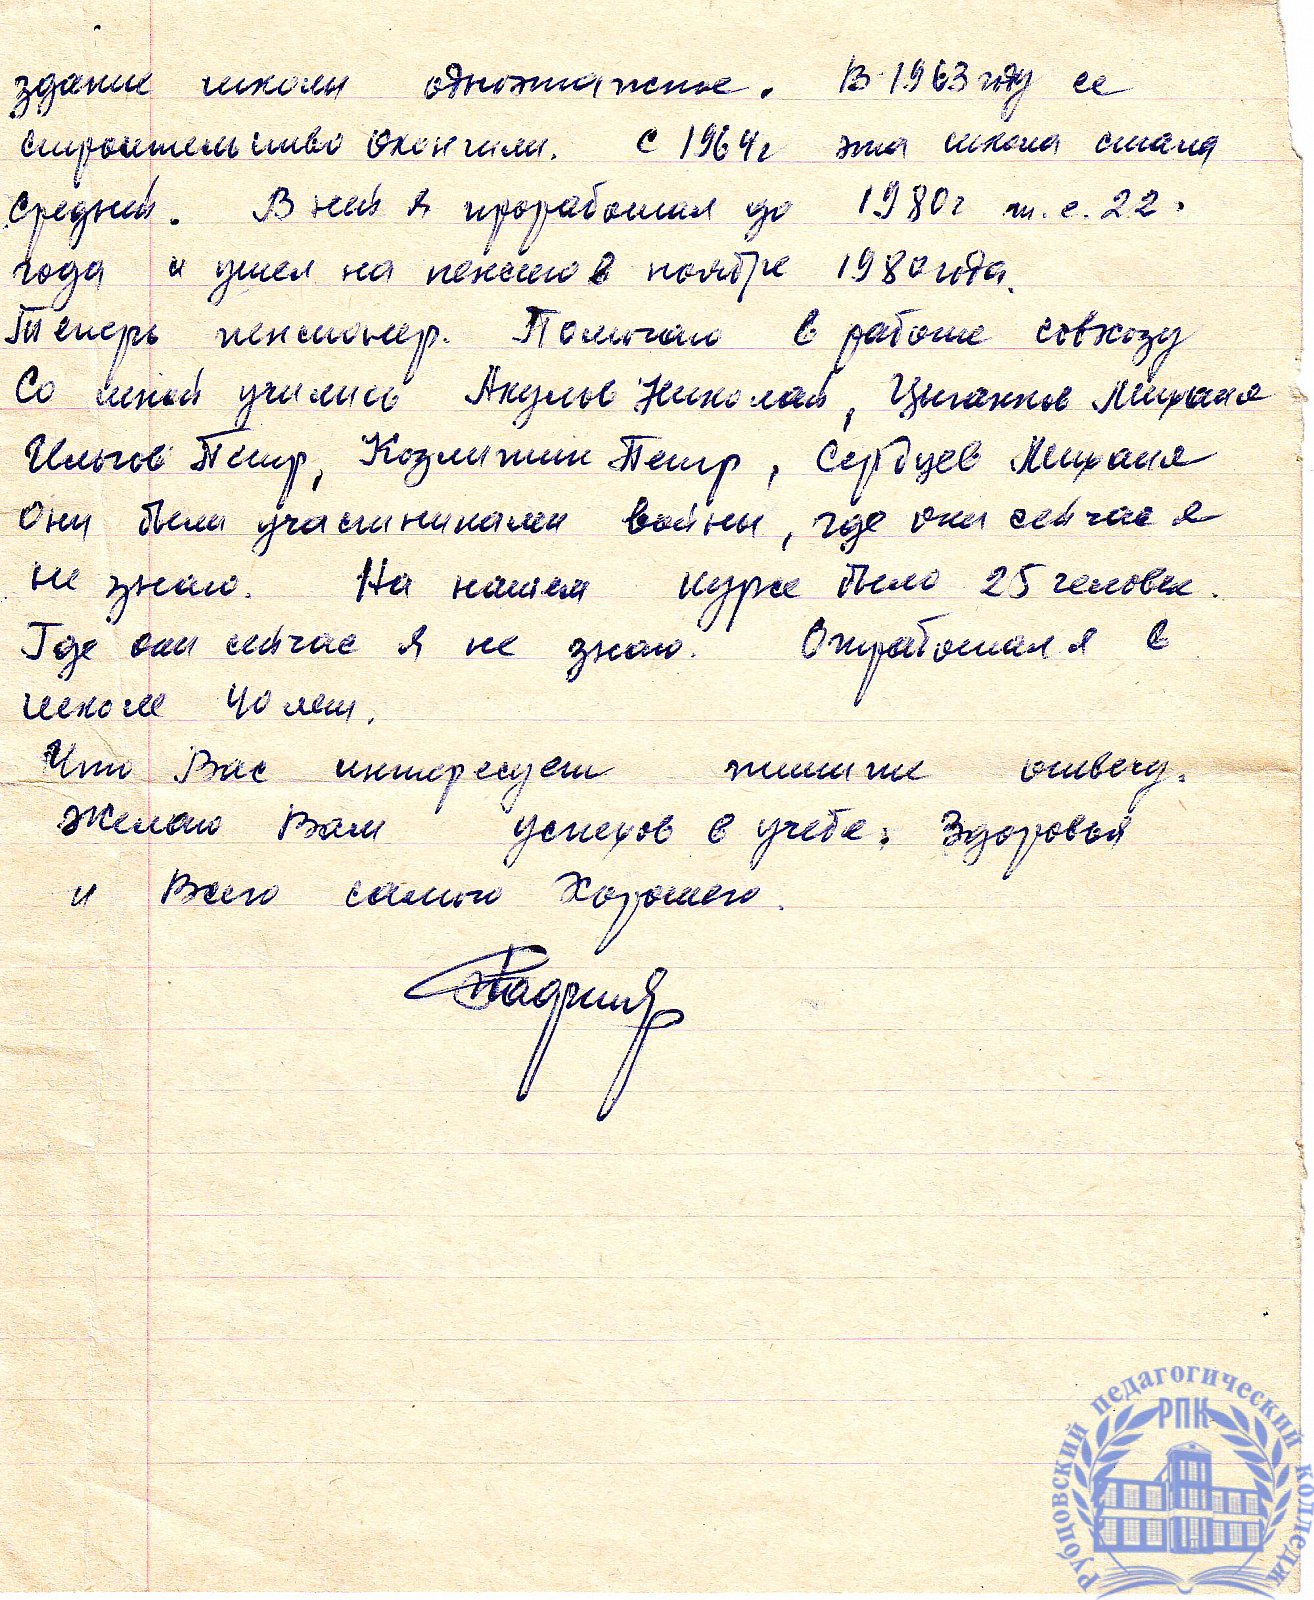 здание школы одноэтажное. В 1963 году ее
строительство окончили. С 1964 г эта школа стала
средней. В ней я проработал до 1980 г т.е. 22.
года и ушел на пенсию в ноябре 1980 года.
Теперь пенсионер. Помогаю в работе совхозу
Со мной учились Акулов Николай, Цыганков Михаил
Ильгов Петр, Козлитин Петр, Сербцев Михаил
Они были участниками войны, где они сейчас я
не знаю. На нашем курсе было 25 человек.
Где они сейчас я не знаю. Отработал я в
школе 40 лет.
Что Вас интересует пишите отвечу.
Желаю Вам успехов в учебе. Здоровья
и Всего самого Хорошего.
Рубцовский педагогический колледж
РПК